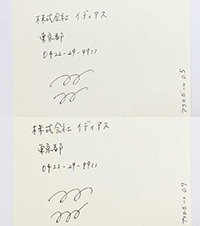 株式会社 イディアス
東京都
0422-29-9911
株式会社 イディアス
東京都
0422-29-9911